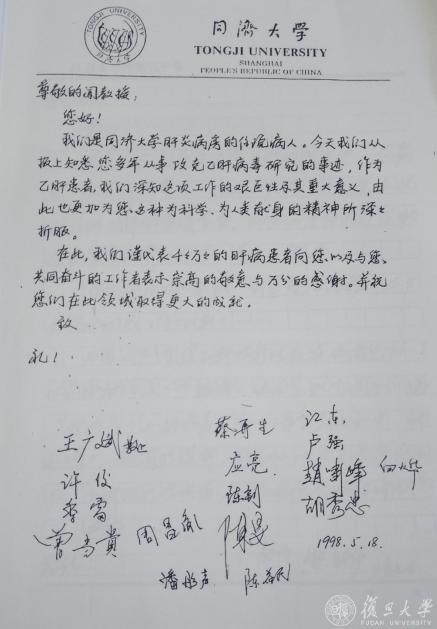 同濟大学
TONGJI UNIVERSITY
SHANGHAI
PEOPLE'S REPUBLIC OF CHINA
尊敬的闻教授:
您好!
我们是同济大学肝炎病房的住院病人。今天我们从
报上知悉您多年从事攻克乙肝病毒研究的事迹,作为
乙肝患者,我们深知这项工作的艰巨性及其重大意义,由
此也更加为您这种为科学、为人类献身的精神所深深
折服。
在此,我们谨代表千千万万的肝病患者向您以及与您
共同奋斗的工作者表示崇高的敬意与万分的感谢。并祝
您们在此领域取得更大的成就。
致
礼!
王广斌
蔡再生
江东
应亮
卢强
许俊
陈钊
胡秀忠
李雷
周昌
1998.5.18.
潘永声
復旦大學
FUDAN UNIVERSITY